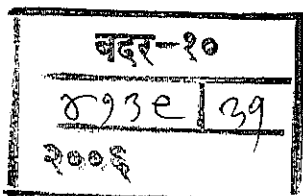 बदर-१०
४१३९ | ३१
२००६